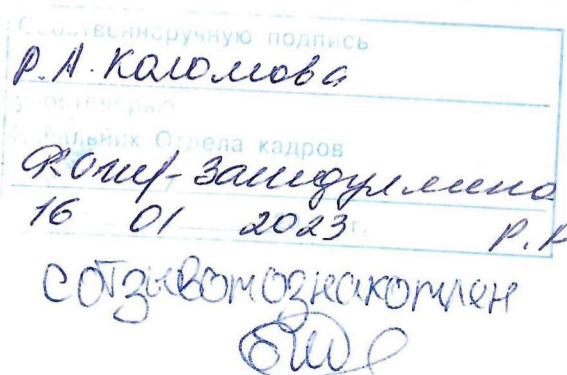 Собственноручную подпись
Р.А. Каломова
удостоверяю
Начальник Отдела кадров
Зашидуллина
16 01 2023 г. Р.Р
с отзывом ознакомлен